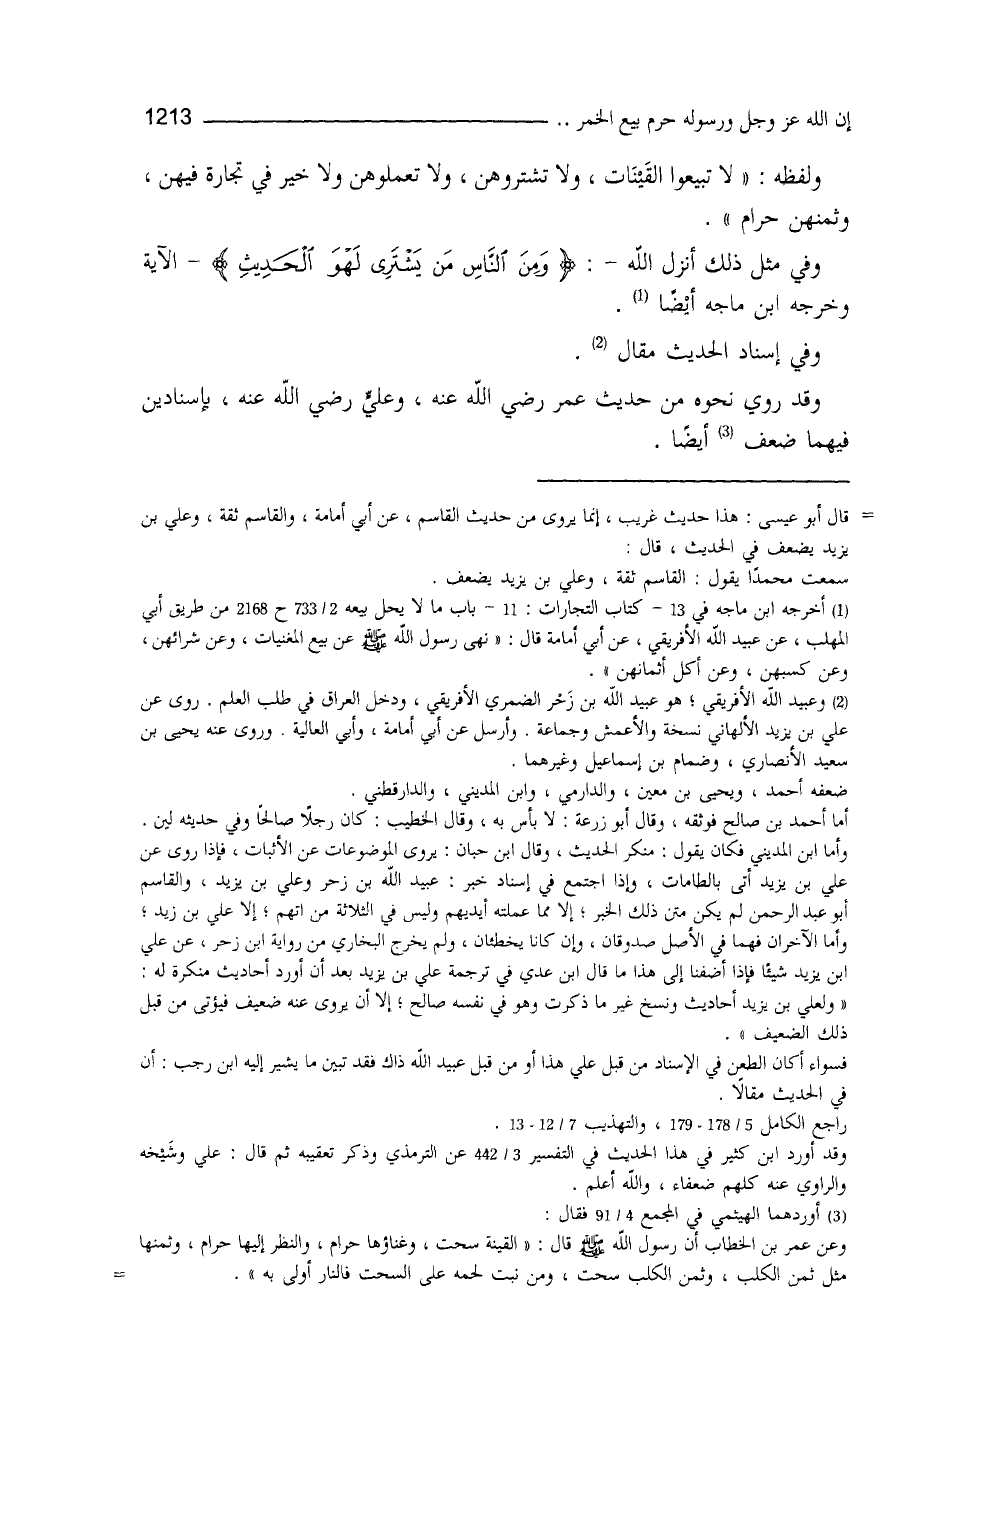 إن الله عز وجل ورسوله حرم بيع الخمر .. 1213
ولفظه : « لا تبيعوا القَيْنَات ، ولا تشتروهن ، ولا تعملوهن ولا خير في تجارة فيهن ،
وثمنهن حرام » .
وفي مثل ذلك أنزل اللّه - : ﴿ وَمِنَ ٱلنَّاسِ مَن يَشْتَرِى لَهْوَ ٱلْحَدِيثِ ﴾ - الآية
وخرجه ابن ماجه أيْضًا (1) .
وفي إسناد الحديث مقال (2) .
وقد روي نحوه من حديث عمر رضي اللّه عنه ، وعليٍّ رضي اللّه عنه ، بإسنادين
فيهما ضعف (3) أيضًا .
= قال أبو عيسى : هذا حديث غريب ، إنما يروى من حديث القاسم ، عن أبي أمامة ، والقاسم ثقة ، وعلي بن
يزيد يضعف في الحديث ، قال :
سمعت محمدًا يقول : القاسم ثقة ، وعلي بن يزيد يضعف .
(1) أخرجه ابن ماجه في 13 - كتاب التجارات : 11 - باب ما لا يحل بيعه 2/ 733 ح 2168 من طريق أبي
المهلب ، عن عبيد اللّه الأفريقي ، عن أبي أمامة قال : « نهى رسول اللّه ﷺ عن بيع المغنيات ، وعن شرائهن ،
وعن كسبهن ، وعن أكل أثمانهن » .
(2) وعبيد اللّه الأفريقي ؛ هو عبيد اللّه بن زَحْر الضمري الأفريقي ، ودخل العراق في طلب العلم . روى عن
علي بن يزيد الألهاني نسخة والأعمش وجماعة . وأرسل عن أبي أمامة ، وأبي العالية . وروى عنه يحيى بن
سعيد الأنصاري ، وضمام بن إسماعيل وغيرهما .
ضعفه أحمد ، ويحيى بن معين ، والدارمي ، وابن المديني ، والدارقطني .
أما أحمد بن صالح فوثقه ، وقال أبو زرعة : لا بأس به ، وقال الخطيب : كان رجلًا صالحًا وفي حديثه لين .
وأما ابن المديني فكان يقول : منكر الحديث ، وقال ابن حبان : يروى الموضوعات عن الأثبات ، فإذا روى عن
علي بن يزيد أتى بالطامات ، وإذا اجتمع في إسناد خبر : عبيد اللّه بن زحر وعلي بن يزيد ، والقاسم
أبو عبد الرحمن لم يكن متن ذلك الخبر ؛ إلا مما عملته أيديهم وليس في الثلاثة من اتهم ؛ إلا علي بن زيد ؛
وأما الآخران فهما في الأصل صدوقان ، وإن كانا يخطئان ، ولم يخرج البخاري من رواية ابن زحر ، عن علي
ابن يزيد شيئًا فإذا أضفنا إلى هذا ما قال ابن عدي في ترجمة علي بن يزيد بعد أن أورد أحاديث منكرة له :
« ولعلي بن يزيد أحاديث ونسخ غير ما ذكرت وهو في نفسه صالح ؛ إلا أن يروى عنه ضعيف فيؤتى من قبل
ذلك الضعيف » .
فسواء أكان الطعن في الإسناد من قبل علي هذا أو من قبل عبيد اللّه ذاك فقد تبين ما يشير إليه ابن رجب : أن
في الحديث مقالًا .
راجع الكامل 5/ 178 - 179 ، والتهذيب 7/ 12 - 13 .
وقد أورد ابن كثير في هذا الحديث في التفسير 3/ 442 عن الترمذي وذكر تعقيبه ثم قال : علي وشَيْخه
والراوي عنه كلهم ضعفاء ، واللّه أعلم .
(3) أوردهما الهيثمي في المجمع 4/ 91 فقال :
وعن عمر بن الخطاب أن رسول اللّه ﷺ قال : « القينة سحت ، وغناؤها حرام ، والنظر إليها حرام ، وثمنها
مثل ثمن الكلب ، وثمن الكلب سحت ، ومن نبت لحمه على السحت فالنار أولى به » . =